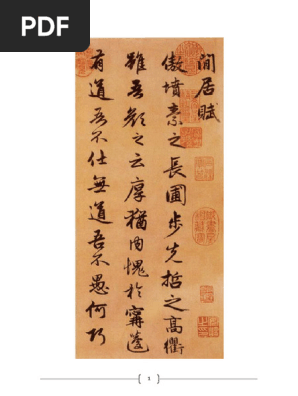 PDF
閒居賦
傲墳素之長圃步先哲之高衢
雖吾顏之云厚猶內愧於甯蘧
有道吾不仕無道吾不愚何巧
1